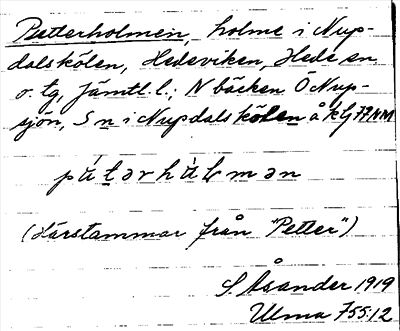 Petterholmen, holme i Nup-
dalskölen, Hedeviken, Hede sn
o. tg, Jämtl. l.; N bäcken Ö Nup-
sjön, S n i Nupdalskölen å kbl 77 NM
pátərhɷlmən
(härstammar från "Petter")
S. Åsander 1919
Ulma 755:12